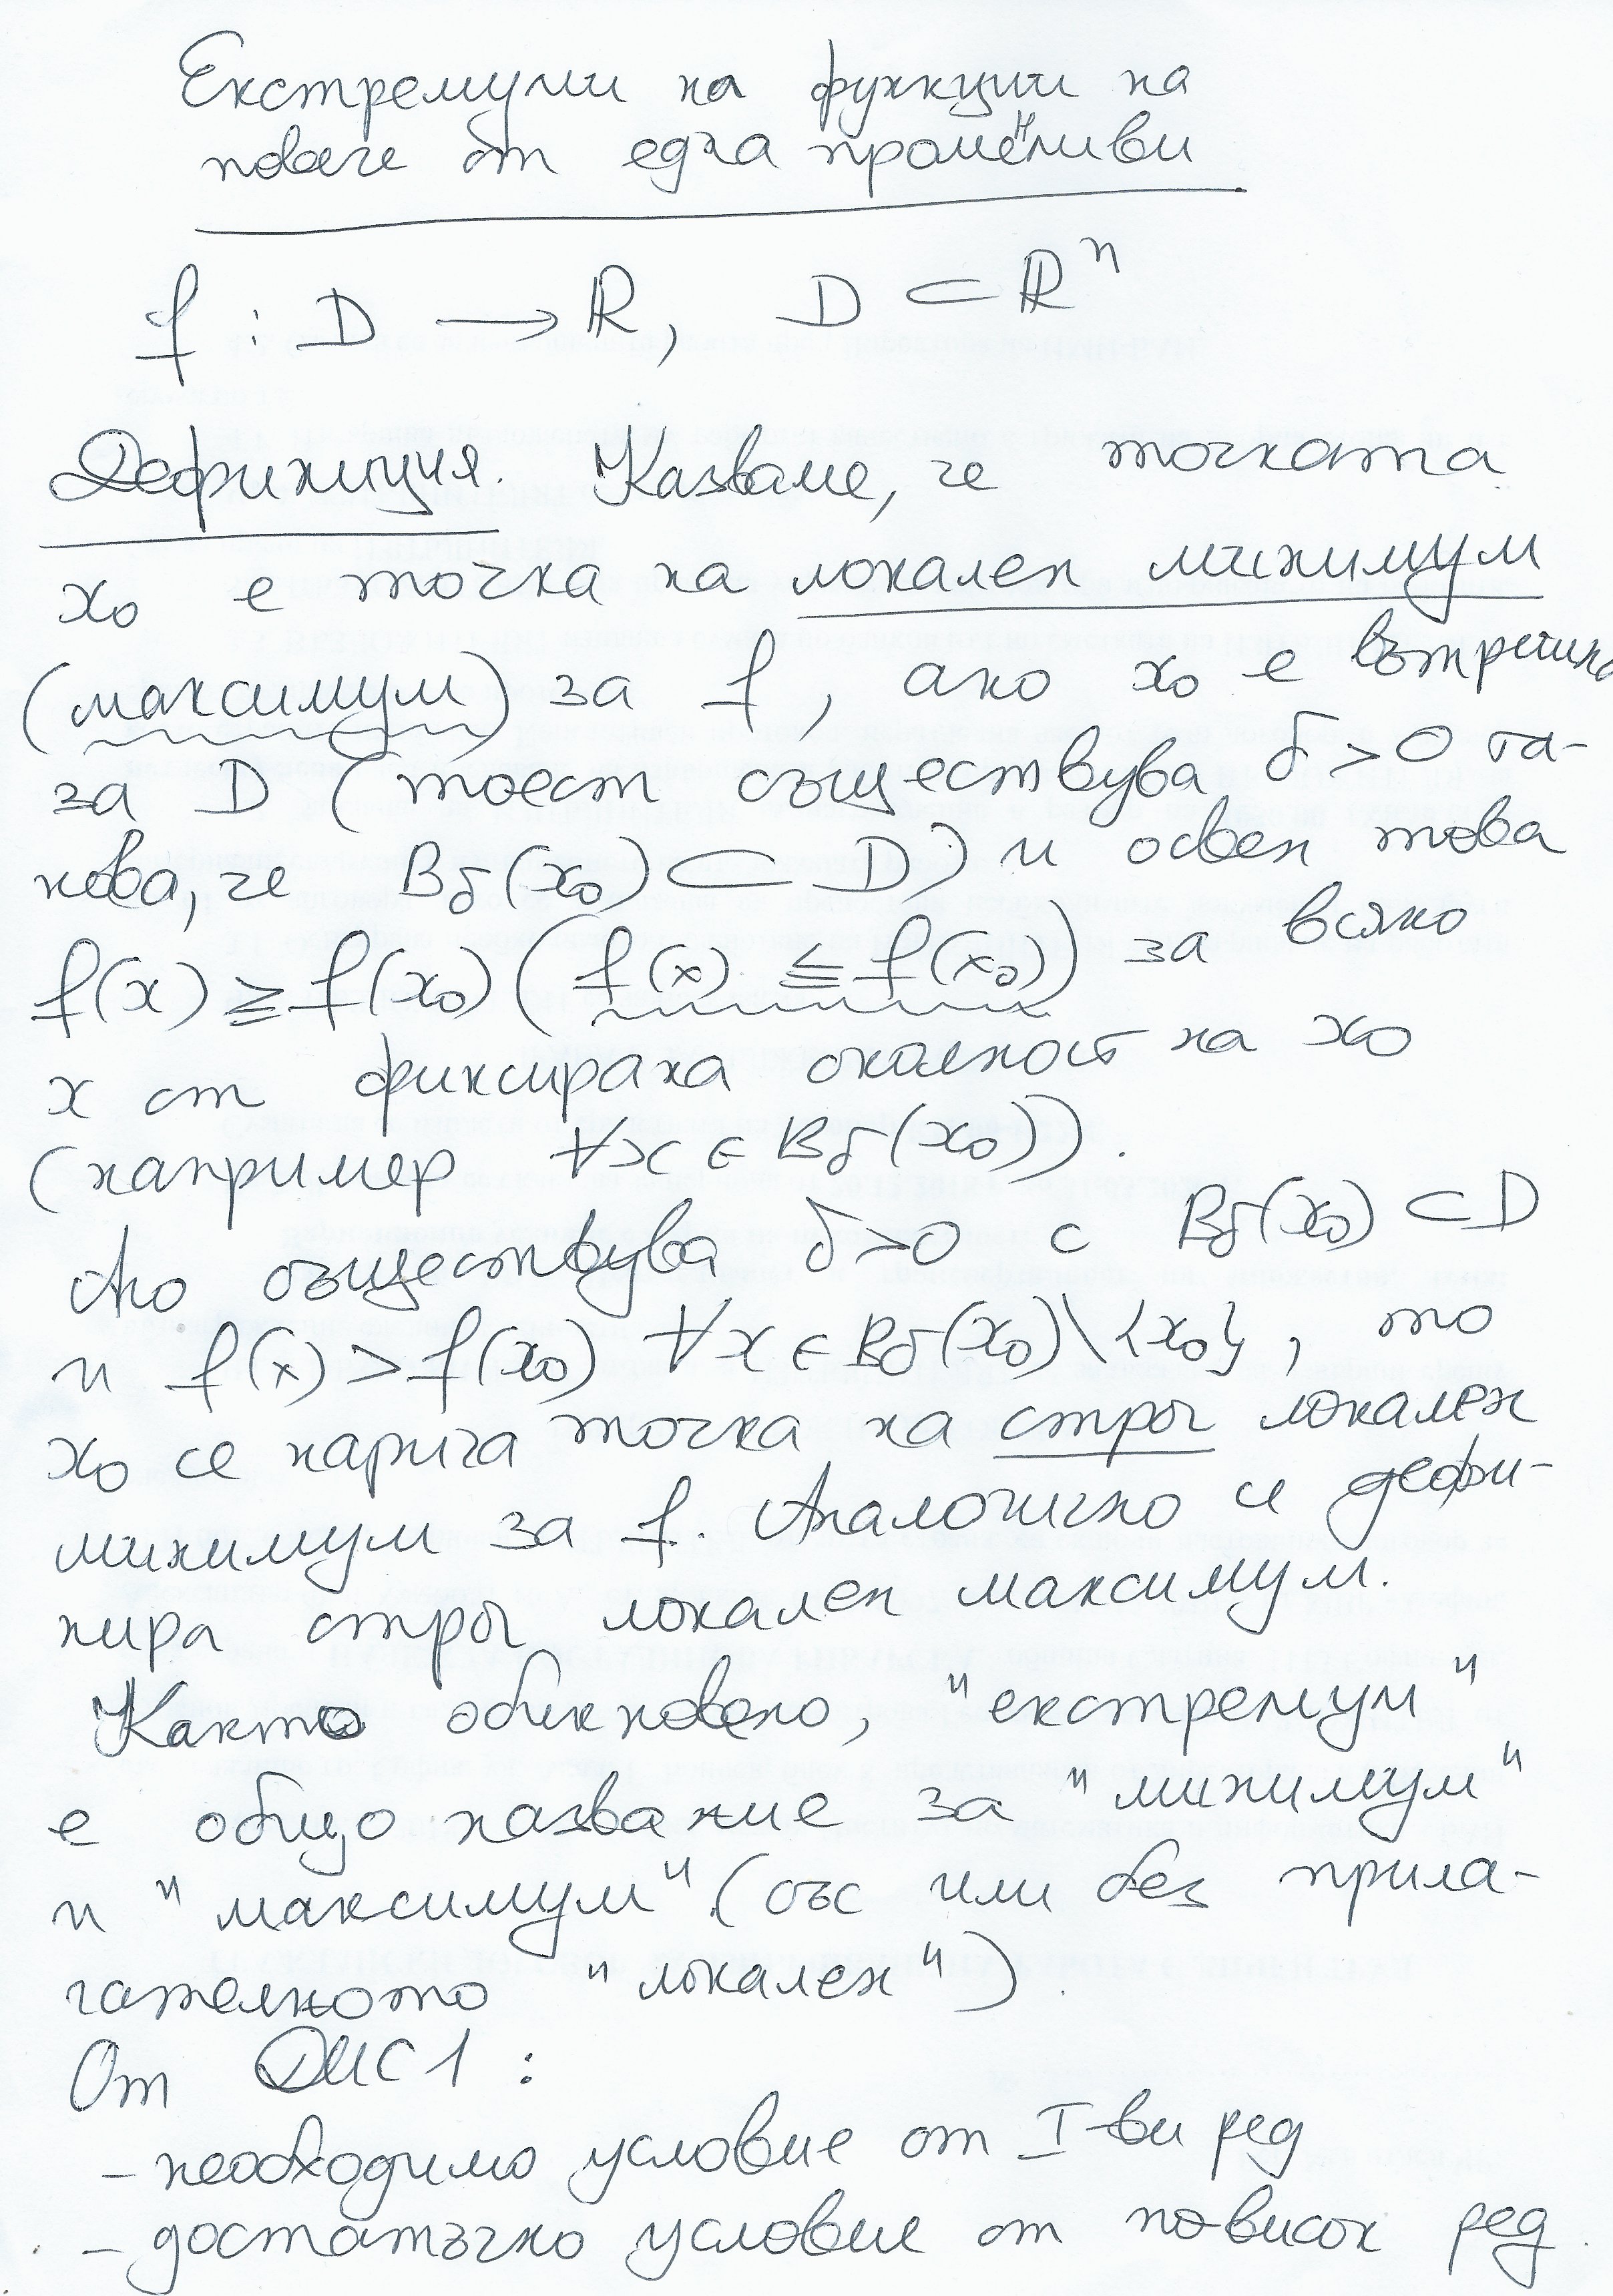 Екстремуми на функции на
повече от една променливи
f : D → ℝ, D ⊂ ℝⁿ
Дефиниция. Казваме, че точката
x₀ е точка на локален минимум
(максимум) за f, ако x₀ е вътрешна
за D (тоест съществува δ>0 та-
кова, че B_δ(x₀) ⊂ D) и освен това
f(x) ≧ f(x₀) (f(x) ≦ f(x₀)) за всяко
x от фиксирана околност на x₀
(например ∀x ∈ B_δ(x₀)).
Ако съществува δ>0 с B_δ(x₀) ⊂ D
и f(x) > f(x₀) ∀x ∈ B_δ(x₀)\{x₀}, то
x₀ се нарича точка на строг локален
минимум за f. Аналогично се дефи-
нира строг локален максимум.
Както обикновено, "екстремум"
е общо название за "минимум"
и "максимум" (със или без прила-
гателното "локален").
От ДИС1 :
- необходимо условие от I-ви ред
- достатъчно условие от по-висок ред